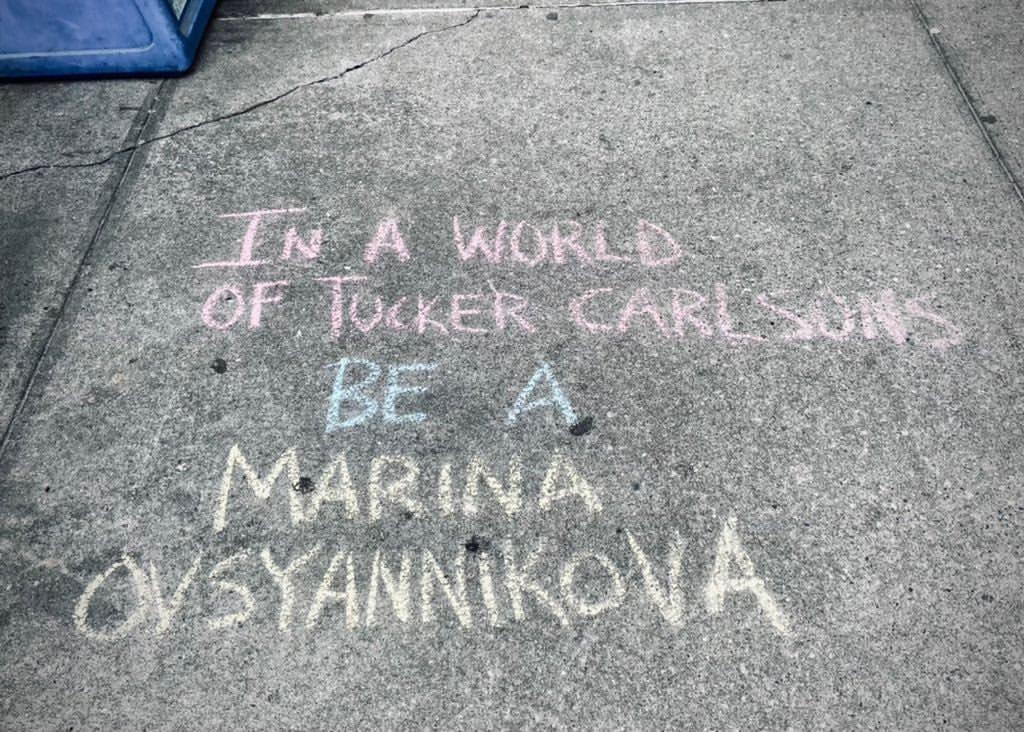 IN A WORLD
OF TUCKER CARLSONS
BE A
MARINA
OVSYANNIKOVA